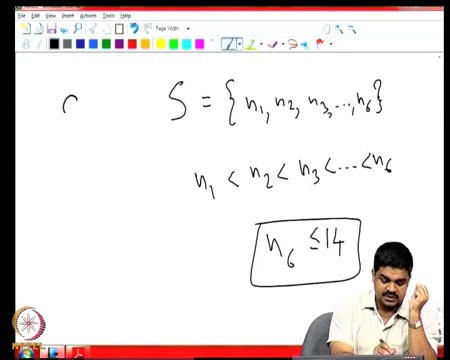 File Edit View Insert Actions Tools Help
Page Width
B
S = { n₁, n₂, n₃, ..., n₆ }
n₁ < n₂ < n₃ < ... < n₆
n₆ ≤ 14
NPTEL